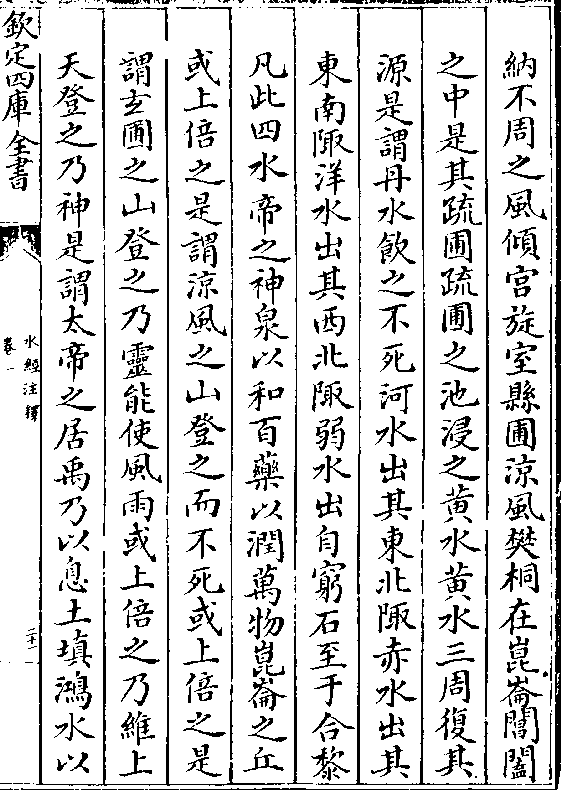 納不周之風傾宫旋室縣圃涼風樊桐在崑崙閶闔
之中是其疏圃疏圃之池浸之黄水黄水三周復其
源是謂丹水飲之不死河水出其東北陬赤水出其
東南陬洋水出其西北陬弱水出自窮石至于合黎
凡此四水帝之神泉以和百藥以潤萬物崑崙之丘
或上倍之是謂涼風之山登之而不死或上倍之是
謂玄圃之山登之乃靈能使風雨或上倍之乃維上
天登之乃神是謂太帝之居禹乃以息土填鴻水以
欽定四庫全書
水經注釋
卷一
二十二